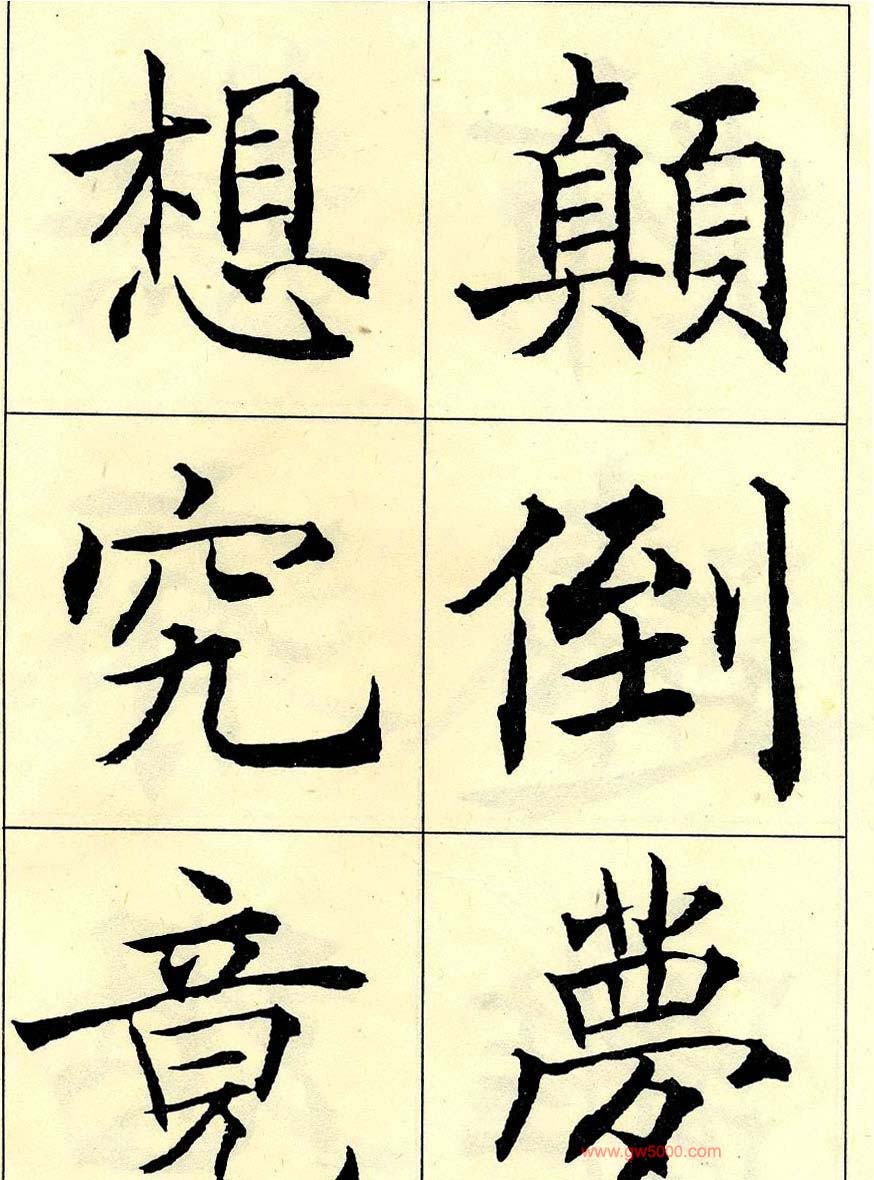 顛倒夢
想究竟
www.gw5000.com